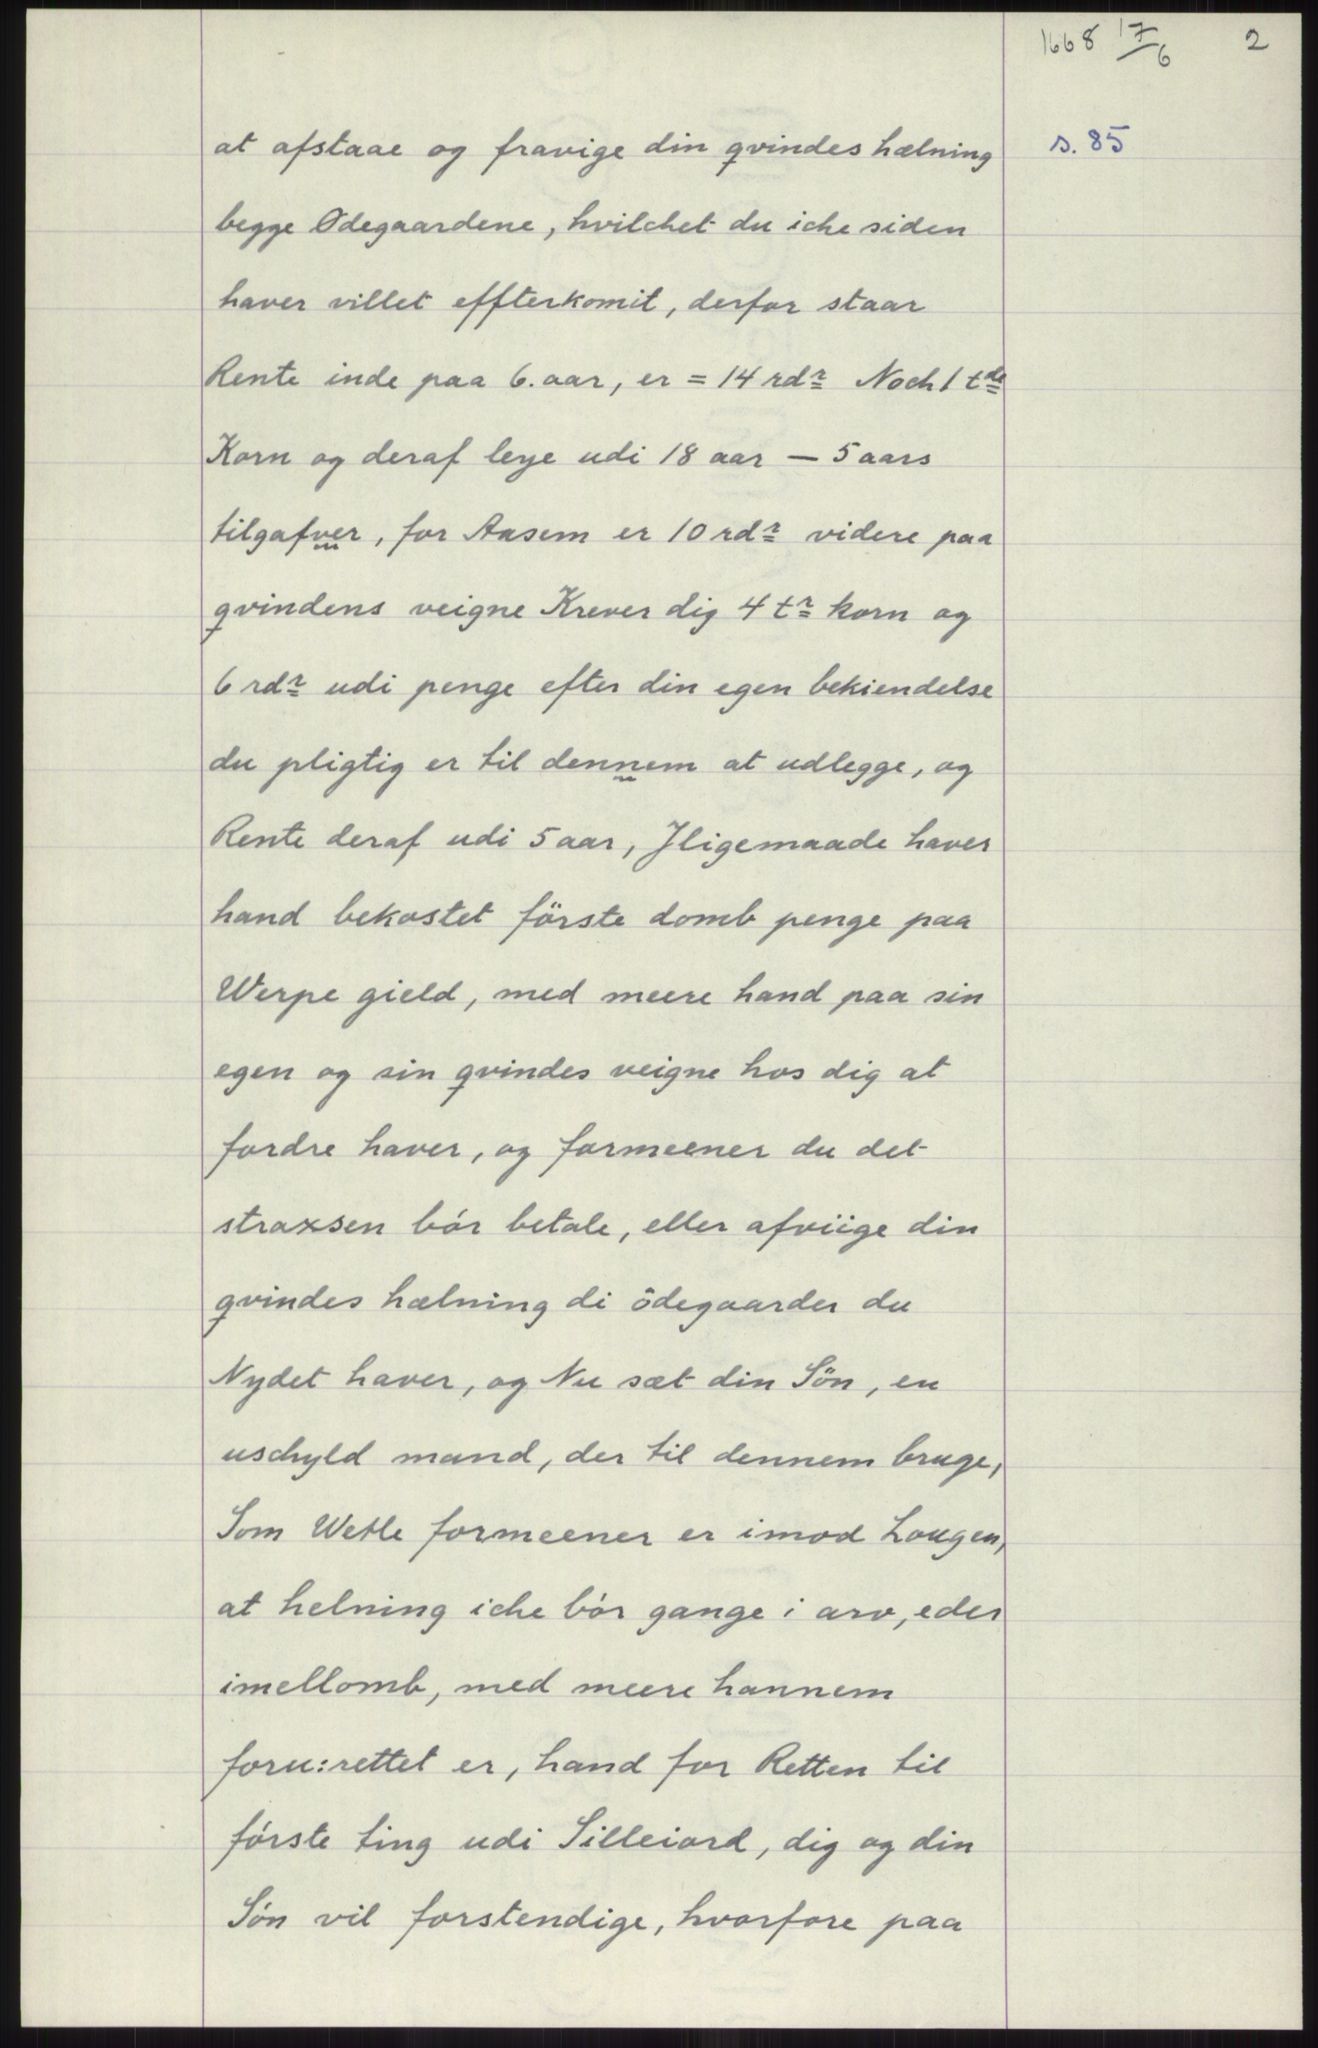 1668 17/6 2
at afstaae og fravige din qvindes hælning s. 85
begge Ødegaardene, hvilchet du iche siden
haver villet effterkomit, derfor staar
Rente inde paa 6. aar, er = 14 rdr Noch 1 tde
Korn og deraf leye udi 18 aar — 5 aars
tilgafver, for Aasem er 10 rdr videre paa
qvindens veigne Krever dig 4 tr korn og
6 rdr udi penge efter din egen bekiendelse
du pligtig er til dennem at udlegge, og
Rente deraf udi 5 aar, Jligemaade haver
hand bekostet förste domb penge paa
Werpe gield, med meere hand paa sin
egen og sin qvindes veigne hos dig at
fordre haver, og formeener du det
straxsen bór betale, eller afviige din
qvindes hælning di ödegaarder du
Nydet haver, og Nu sæt din Sön, en
uschyld mand, der til dennem bruge,
Som Wetle formeener er imod Lougen,
at helning iche bór gange i arv, eder
imellomb, med meere hannem
foru:rettet er, hand for Retten til
fórste ting udi Silleiord, dig og din
Són vil forstendige, hvorfore paa